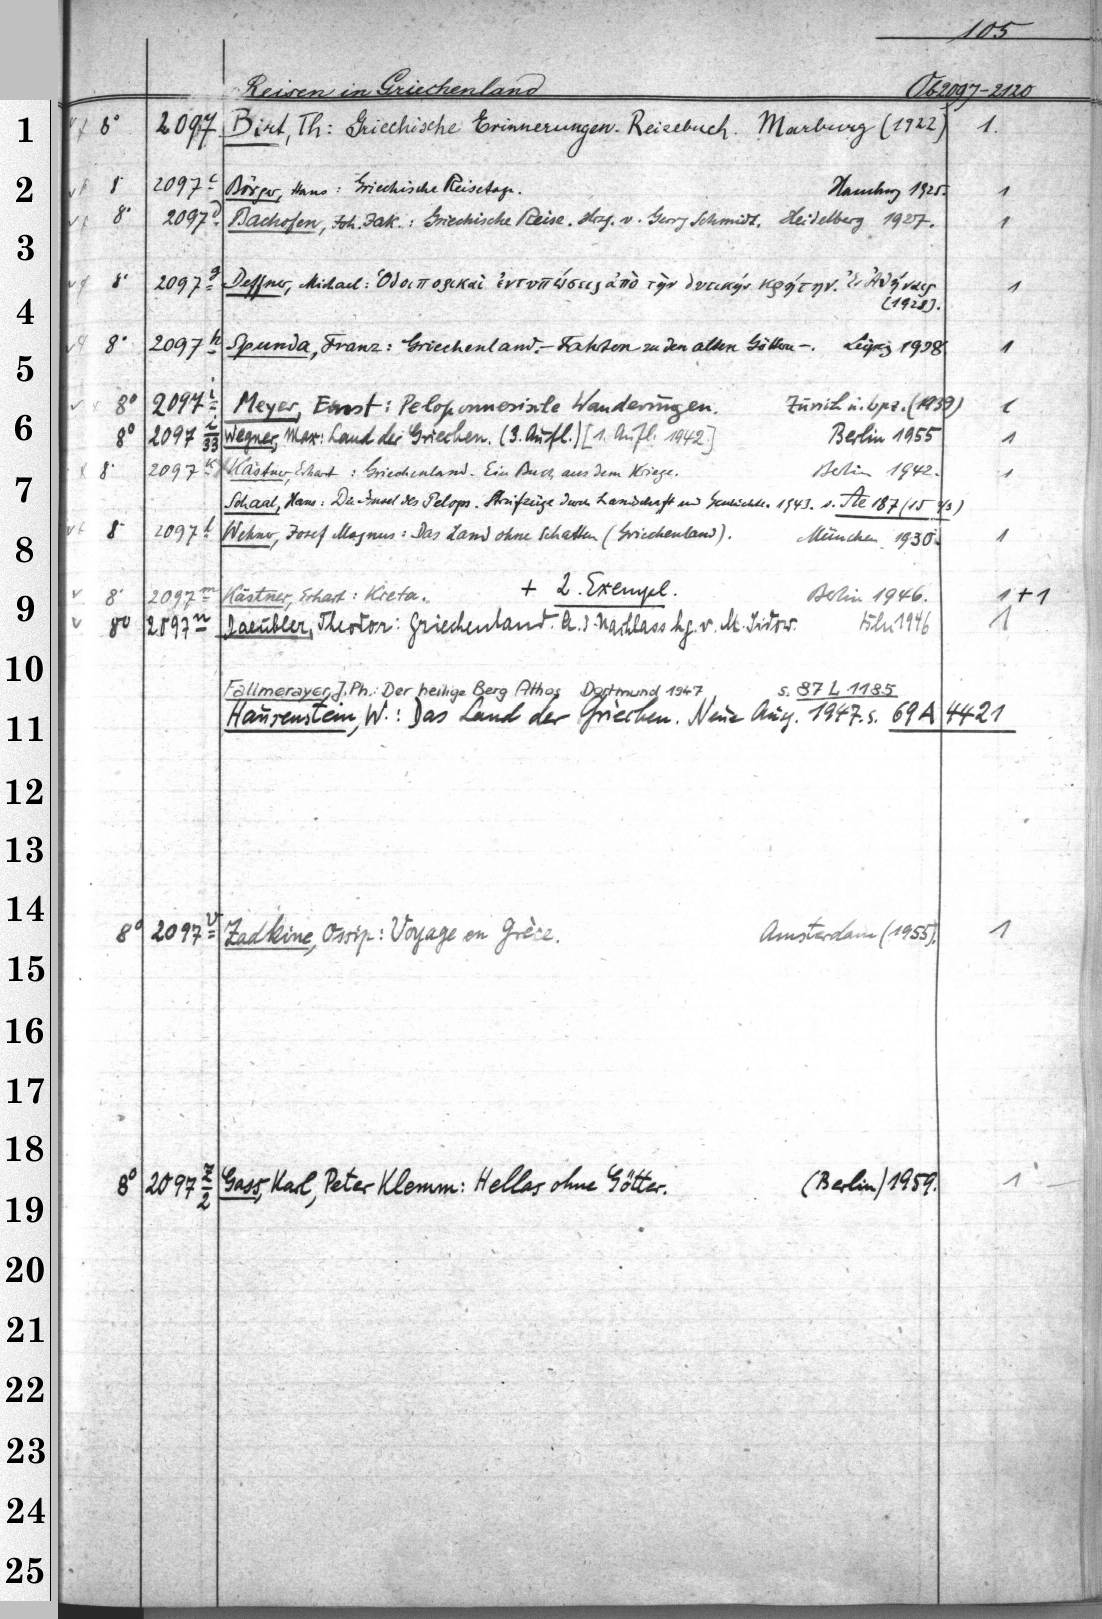 105
Reisen in Griechenland Ob 2097-2120
1 8° 2097 Birt, Th: Griechische Erinnerungen. Reisebuch. Marburg (1922) 1.
2 8° 2097 c Börger, Hans: Griechische Reisetage. Hamburg 1925. 1
8° 2097 d Bachofen, Joh. Jak.: Griechische Reise. Hrsg. v. Georg Schmidt. Heidelberg 1927. 1
3
8° 2097 g Deffner, Michael: Ὁδοιπορικαὶ ἐντυπώσεις ἀπὸ τὴν δυτικὴν Κρήτην. Ἐν Ἀθήναις 1
4 (1928).
8° 2097 h Spunda, Franz: Griechenland. – Fahrten zu den alten Göttern –. Leipzig 1938 1
5
8° 2097 i Meyer, Ernst: Peloponnesische Wanderungen. Zürich u. Lpz. (1939) 1
6 8° 2097 i/33 Wegner, Max: Land der Griechen. (3. Aufl.) [1. Aufl. 1942] Berlin 1955 1
8° 2097 k Kästner, Erhart: Griechenland. Ein Buch aus dem Kriege. Berlin 1942. 1
7 Schaal, Hans: Die Insel des Pelops. Streifzüge durch Landschaft und Geschichte. 1943. s. Ae 187 (15 2/3)
8 8° 2097 l Wehner, Josef Magnus: Das Land ohne Schatten (Griechenland). München 1930. 1
9 8° 2097 m Kästner, Erhart: Kreta. + 2. Exempl. Berlin 1946. 1+1
8° 2097 n Daeubler, Theodor: Griechenland. A. d. Nachlass hg. v. M. Sidow. 1946 1
10
Fallmerayer, J. Ph.: Der heilige Berg Athos Dortmund 1947 s. 87 L 1185
11 Hausenstein, W.: Das Land der Griechen. Neue Ausg. 1947. s. 69 A 4421
12
13
14 8° 2097 v Zadkine, Ossip: Voyage en Grèce. Amsterdam (1955). 1
15
16
17
18
8° 2097 z/2 Gass, Karl, Peter Klemm: Hellas ohne Götter. (Berlin) 1959. 1
19
20
21
22
23
24
25